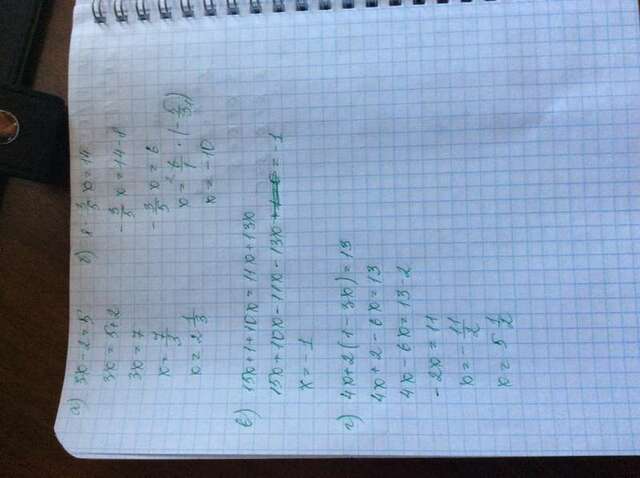 а) 3x - 2 = 5
3x = 5+2
3x = 7
x = 7/3
x = 2 1/3
б) 8 - 3/5 x = 14
- 3/5 x = 14 - 8
- 3/5 x = 6
x = 6/1 · (- 5/3)
x = -10
в) 15x + 1 + 10x = 11x + 13x
15x + 10x - 11x - 13x = -1
x = -1
г) 4x + 2(1 - 3x) = 13
4x + 2 - 6x = 13
4x - 6x = 13 - 2
-2x = 11
x = - 11/2
x = 5 1/2